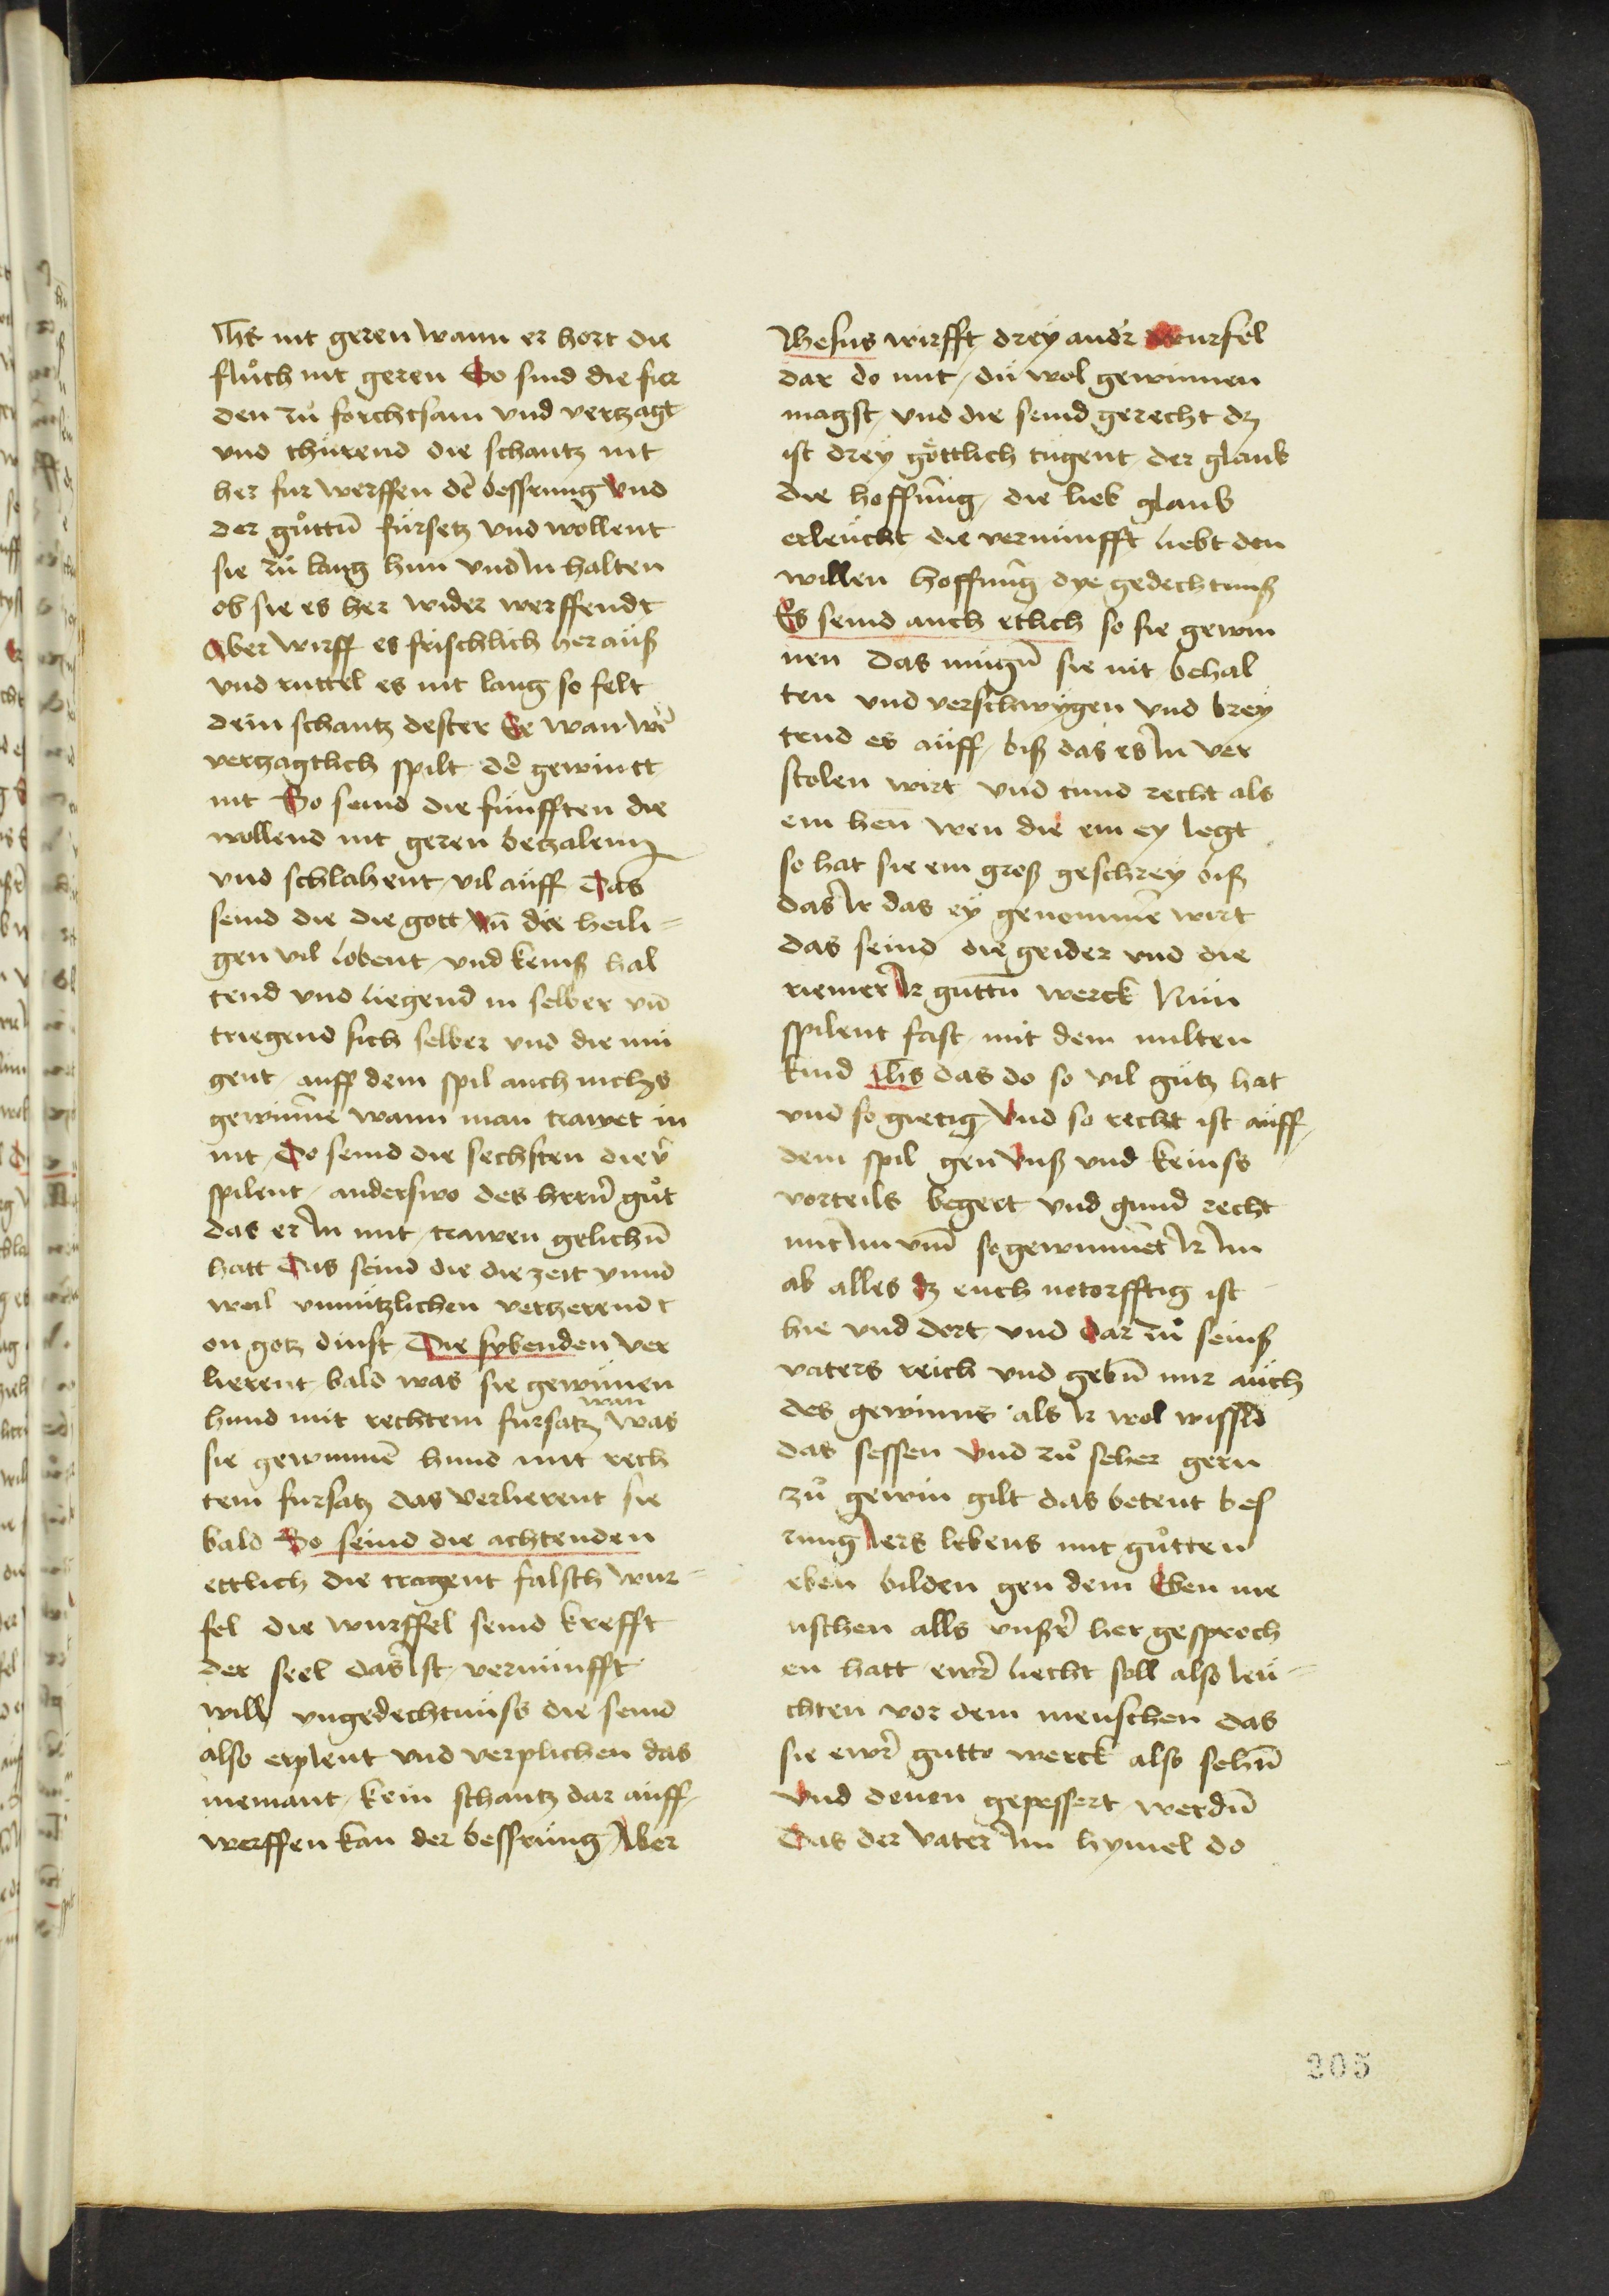 Jh̅s nit geren wann er hort die
fluͦch nit geren So sind die fier
den zuͦ forchtsam vnd vertzagt
vnd thürend die schantz nit
her fur werffen der̄ bessrung vnd
der guͦttn̄ fürsetz vnd wollent
sie zuͦ lang hin vnd Jn halten
ob sie es her wider werffendt
Aber wirff es frischlich herauß
vnd ruttel es nit lang so felt
dein schantz dester Ee wan wer̄
vertzagtlich spilt der̄ gewintt
nit So seind die fünfften die
wollend nit geren betzalenn
vnd schlahent vil auff Das
seind die die gott vn̄ die heili=
gen vil lobent vnd keinß hal
tend vnd liegend in selber vn̄
triegend sich selber vnd die mü
gent auff dem spil auch nichts
gewin̄ne wann man trawet in
nit So seind die sechsten die v̄
spilent anderswo des herrn̄ guͦt
das er Jn mit trawen gelichn̄
hatt Das seind die die zeit vnnd
weil vnnützlichen vertzerendt
on gotz dinst Die sybenden ver
lierent bald was sie gewinen
hund mit rechtem fursatz wan was
sie gewinnē hund mit rech
tem fursatz das verlierent sie
bald So seind die achtenden
ettlich die tragent falsch wur=
fel die wurffel seind krefft
der seel das Ist vernünfft
will vngedechtnüss die seind
also erplent vnd verplichen das
niemant kein schantz dar auff
werffen kan der bessrüng Aber
Jhesus wirfft drey ander̄ wurfel
dar do mit dü wol gewinnen
magst vnd die seind gerecht dz
ist drey göttlich tugent der glaub
die hoffnūg die lieb glaub
erleücht die vernünfft liebt den
willen hoffnūg dye gedechtnuß
Es seind auch etlich so sie gewin
nen das mügn̄ sie nit behal
ten vnd verschwygen vnd brey
tend es auff biß das es Jn ver
stolen wirt vnd tund recht als
ein hen̄ wen die ein ey legt
so hat sie ein groß geschrey biß
das Jr das ey genommē wirt
das seind die geider vnd die
riemer Jr guttn̄ werck Nün
spilent fast mit dem milten
kind Jh̅s das do so vil gutz hat
vnd so gietig vnd so recht ist auff
dem spil gen vnß vnd keinss
vorteils begert vnd gund recht
mit Jm vm̄ so gewinnēt Jr Jm
ab alles dz euch notorfftig ist
hie vnd dort vnd dar zuͦ seinß
vaters reich vnd gebn̄ mir auch
des gewinns als Jr wol wissēd
das sessen vnd zuͦ seher gern
zuͦ gewin gilt das betent bes
rung Jers lebens mit guͦtten
eben bilden gen dem Eben me
nschen alls vnßer̄ her gesproch
en hatt ewer̄ liecht soll also leü=
chten vor dem menschen das
sie ewer̄ gutte werck also sehn̄
vnd denen gepessert werdn̄
Das der vater Jm hymel do
205